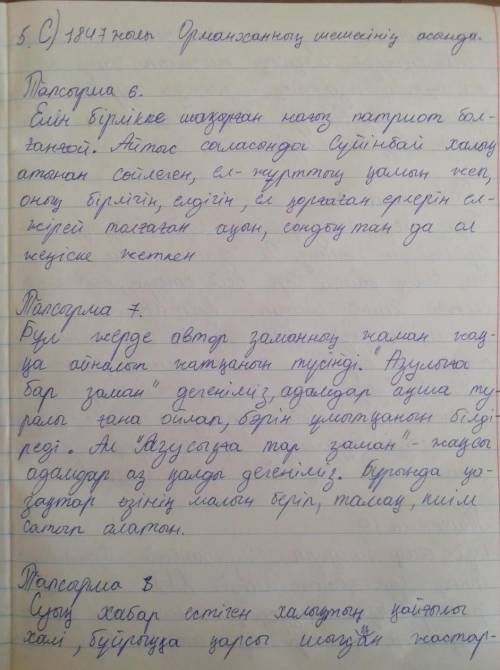 5. С) 1847 жылы Орманханның шешесінің асында.
Тапсырма 6.
Елін бірлікке шақорған нағыз патриот бол-
ғанғой. Айтыс сыласында Сүйінбай халық
атынан сөйлеген, ел-жұрттың қамын жеп,
оның бірлігін, елдігін, ел қорғаған ерлерін ел-
жірей толғаған ақын, сондықтан да ол
жеңіске жеткен
Тапсырма 7.
Бұл жерде автор заманның жаман жаққа
қа айналып жатқанын түсінді. "Азулыға
бар заман" дегеніміз, адамдар ақша ту-
ралы ғана ойлап, бәрін ұмытқанын білді-
реді. Ал "Азусыға тар заман" - жақсы
адамдар аз қалды дегеніміз. Бұрында қа-
зақтар өзінің малын беріп, тамақ, киім
сатып алатын.
Тапсырма 8
Суық хабар естіген халықтың қайғылы
халі, бұйрыққа қарсы шыққан жастар-